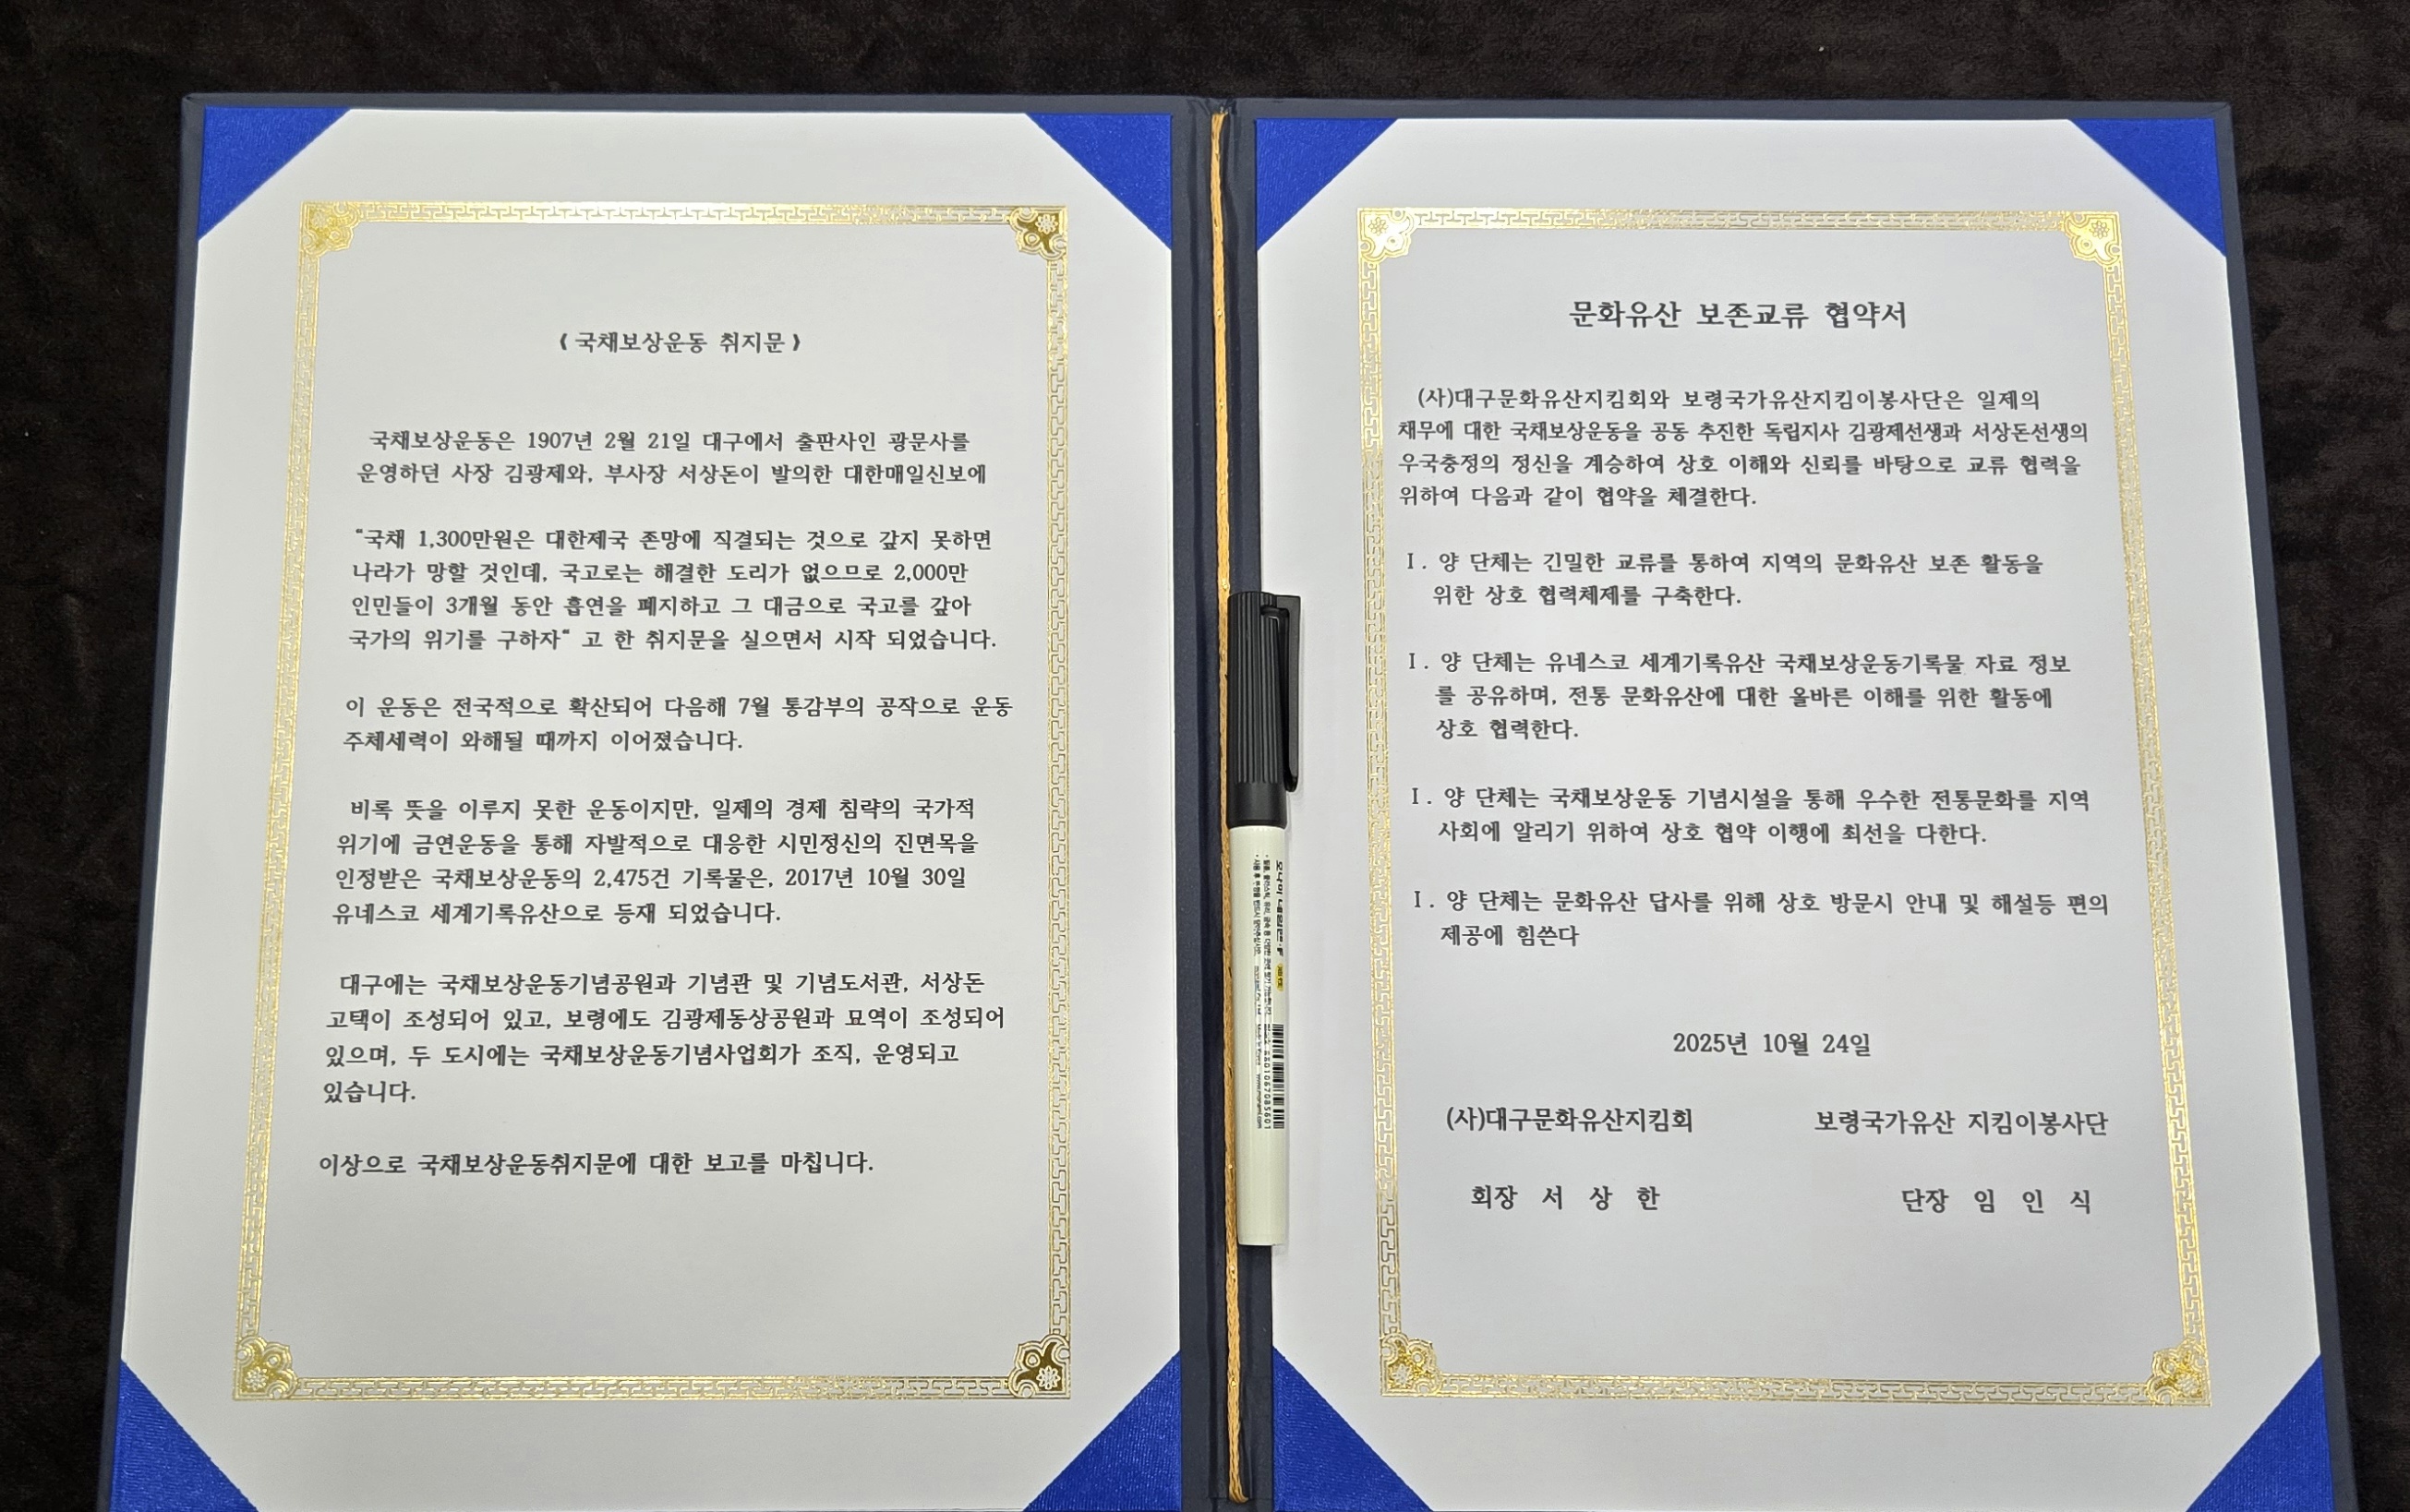 《국채보상운동 취지문》
국채보상운동은 1907년 2월 21일 대구에서 출판사인 광문사를
운영하던 사장 김광제와, 부사장 서상돈이 발의한 대한매일신보에
“국채 1,300만원은 대한제국 존망에 직결되는 것으로 갚지 못하면
나라가 망할 것인데, 국고로는 해결한 도리가 없으므로 2,000만
인민들이 3개월 동안 흡연을 폐지하고 그 대금으로 국고를 갚아
국가의 위기를 구하자“ 고 한 취지문을 실으면서 시작 되었습니다.
이 운동은 전국적으로 확산되어 다음해 7월 통감부의 공작으로 운동
주체세력이 와해될 때까지 이어졌습니다.
비록 뜻을 이루지 못한 운동이지만, 일제의 경제 침략의 국가적
위기에 금연운동을 통해 자발적으로 대응한 시민정신의 진면목을
인정받은 국채보상운동의 2,475건 기록물은, 2017년 10월 30일
유네스코 세계기록유산으로 등재 되었습니다.
대구에는 국채보상운동기념공원과 기념관 및 기념도서관, 서상돈
고택이 조성되어 있고, 보령에도 김광제동상공원과 묘역이 조성되어
있으며, 두 도시에는 국채보상운동기념사업회가 조직, 운영되고
있습니다.
이상으로 국채보상운동취지문에 대한 보고를 마칩니다.
문화유산 보존교류 협약서
(사)대구문화유산지킴회와 보령국가유산지킴이봉사단은 일제의
채무에 대한 국채보상운동을 공동 추진한 독립지사 김광제선생과 서상돈선생의
우국충정의 정신을 계승하여 상호 이해와 신뢰를 바탕으로 교류 협력을
위하여 다음과 같이 협약을 체결한다.
Ⅰ. 양 단체는 긴밀한 교류를 통하여 지역의 문화유산 보존 활동을
위한 상호 협력체제를 구축한다.
Ⅰ. 양 단체는 유네스코 세계기록유산 국채보상운동기록물 자료 정보
를 공유하며, 전통 문화유산에 대한 올바른 이해를 위한 활동에
상호 협력한다.
Ⅰ. 양 단체는 국채보상운동 기념시설을 통해 우수한 전통문화를 지역
사회에 알리기 위하여 상호 협약 이행에 최선을 다한다.
Ⅰ. 양 단체는 문화유산 답사를 위해 상호 방문시 안내 및 해설등 편의
제공에 힘쓴다
2025년 10월 24일
(사)대구문화유산지킴회 보령국가유산 지킴이봉사단
회장 서 상 한 단장 임 인 식